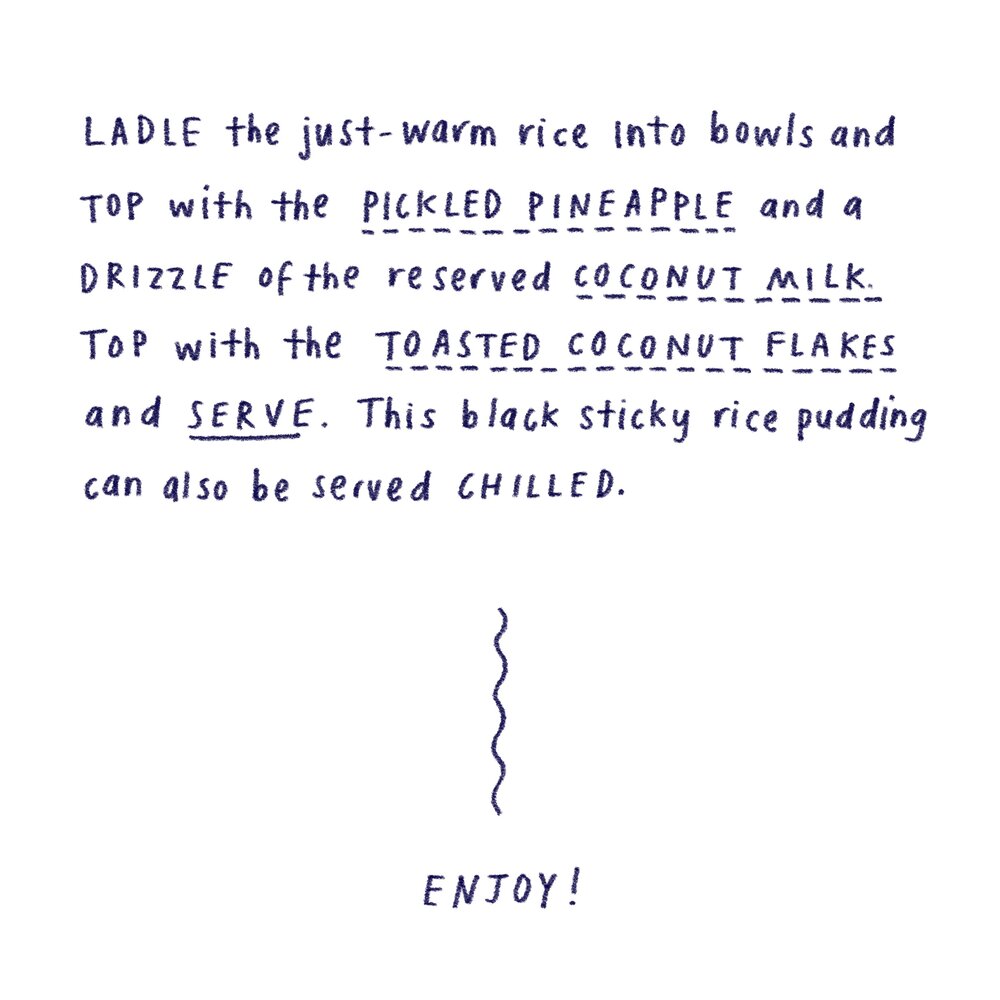 LADLE the just-warm rice into bowls and
TOP with the PICKLED PINEAPPLE and a
DRIZZLE of the reserved COCONUT MILK.
TOP with the TOASTED COCONUT FLAKES
and SERVE. This black sticky rice pudding
can also be served CHILLED.
ENJOY!